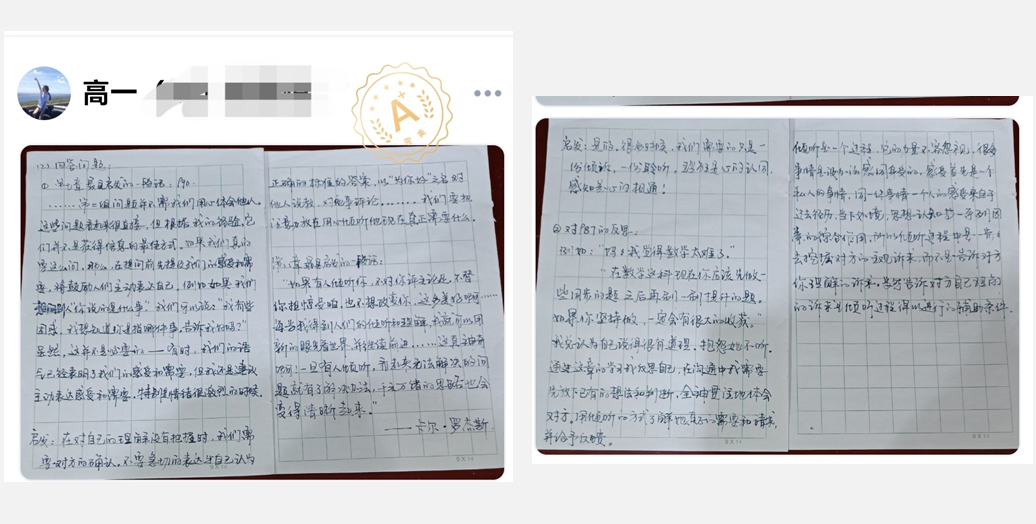 高一
A
(2) 回答问题:
① 让你最有启发的一段话: P90.
……第二组问题并不需我们用心体会他人。
这些问题看起来很直接,但根据我的经验,它
们并不是获得信息的最佳方式。如果我们真的
要这么问,那么,在提问前先提及我们的感受和需
要,将鼓励人们主动表达自己。例如如果我们
想问别人"你说的是什么事?"我们可以说:"我有些
困惑,我想知道你是指哪件事,告诉我好吗?"
虽然,这样不是必要的——有时,我们的语
气已经表明了我们的感受和需要,但我还是建议
主动表达感受和需要,特别是情绪很激烈的时候。
启发: 在对自己的理解没有把握时,我们需
要对方的确认。不要急切的表达出自己认为
正确的标准的答案,以"为你好"之名对
他人说教,对他事评论。……我们要把
注意力放在用心体听他现在真正需要什么。
让你最有启发的一段话:
"如果有人倾听你,不对你评头论足,不替
你担惊受怕,也不想改变你,这多美好啊……
每当我得到人们的倾听和理解,我就可以用
新的眼光看世界,并继续前进……这真神奇
啊!一旦有人倾听,看起来无法解决的问
题就有了解决办法,千头万绪的思路也会
变得清晰起来。"
——卡尔·罗杰斯
启发: 是的,很多时候,我们需要的只是一
份倾诉,一份聆听
感知是心的相通!
② 对P87的反思:
例如:"妈,我觉得数学太难了。"
"在数学这科现在你应该先做一
些同步的题,之后再刷一刷提升的题。
如果你坚持做,一定会有很大的收获。"
我总认为自己说得很有道理,抱怨她不听。
通过这章的学习我发现自己,在沟通中我需要
先放下已有的想法和判断,全神贯注地体会
对方。用倾听的方式了解他真正的需要和请求,
并给予反馈。
倾听是一个过程,它的力量不容忽视,很多
事情是没办法感同身受的,感受首先是一个
私人的事情,同一件事情一个人的感受来自于
过去经历,当下处境,思想认知等一系列因
素的综合作用,所以倾听过程中是一步步
去挖掘对方的主观诉求,而不是告诉对方
你理解的诉求。
的诉求是倾听过程得以进行的辅助条件。